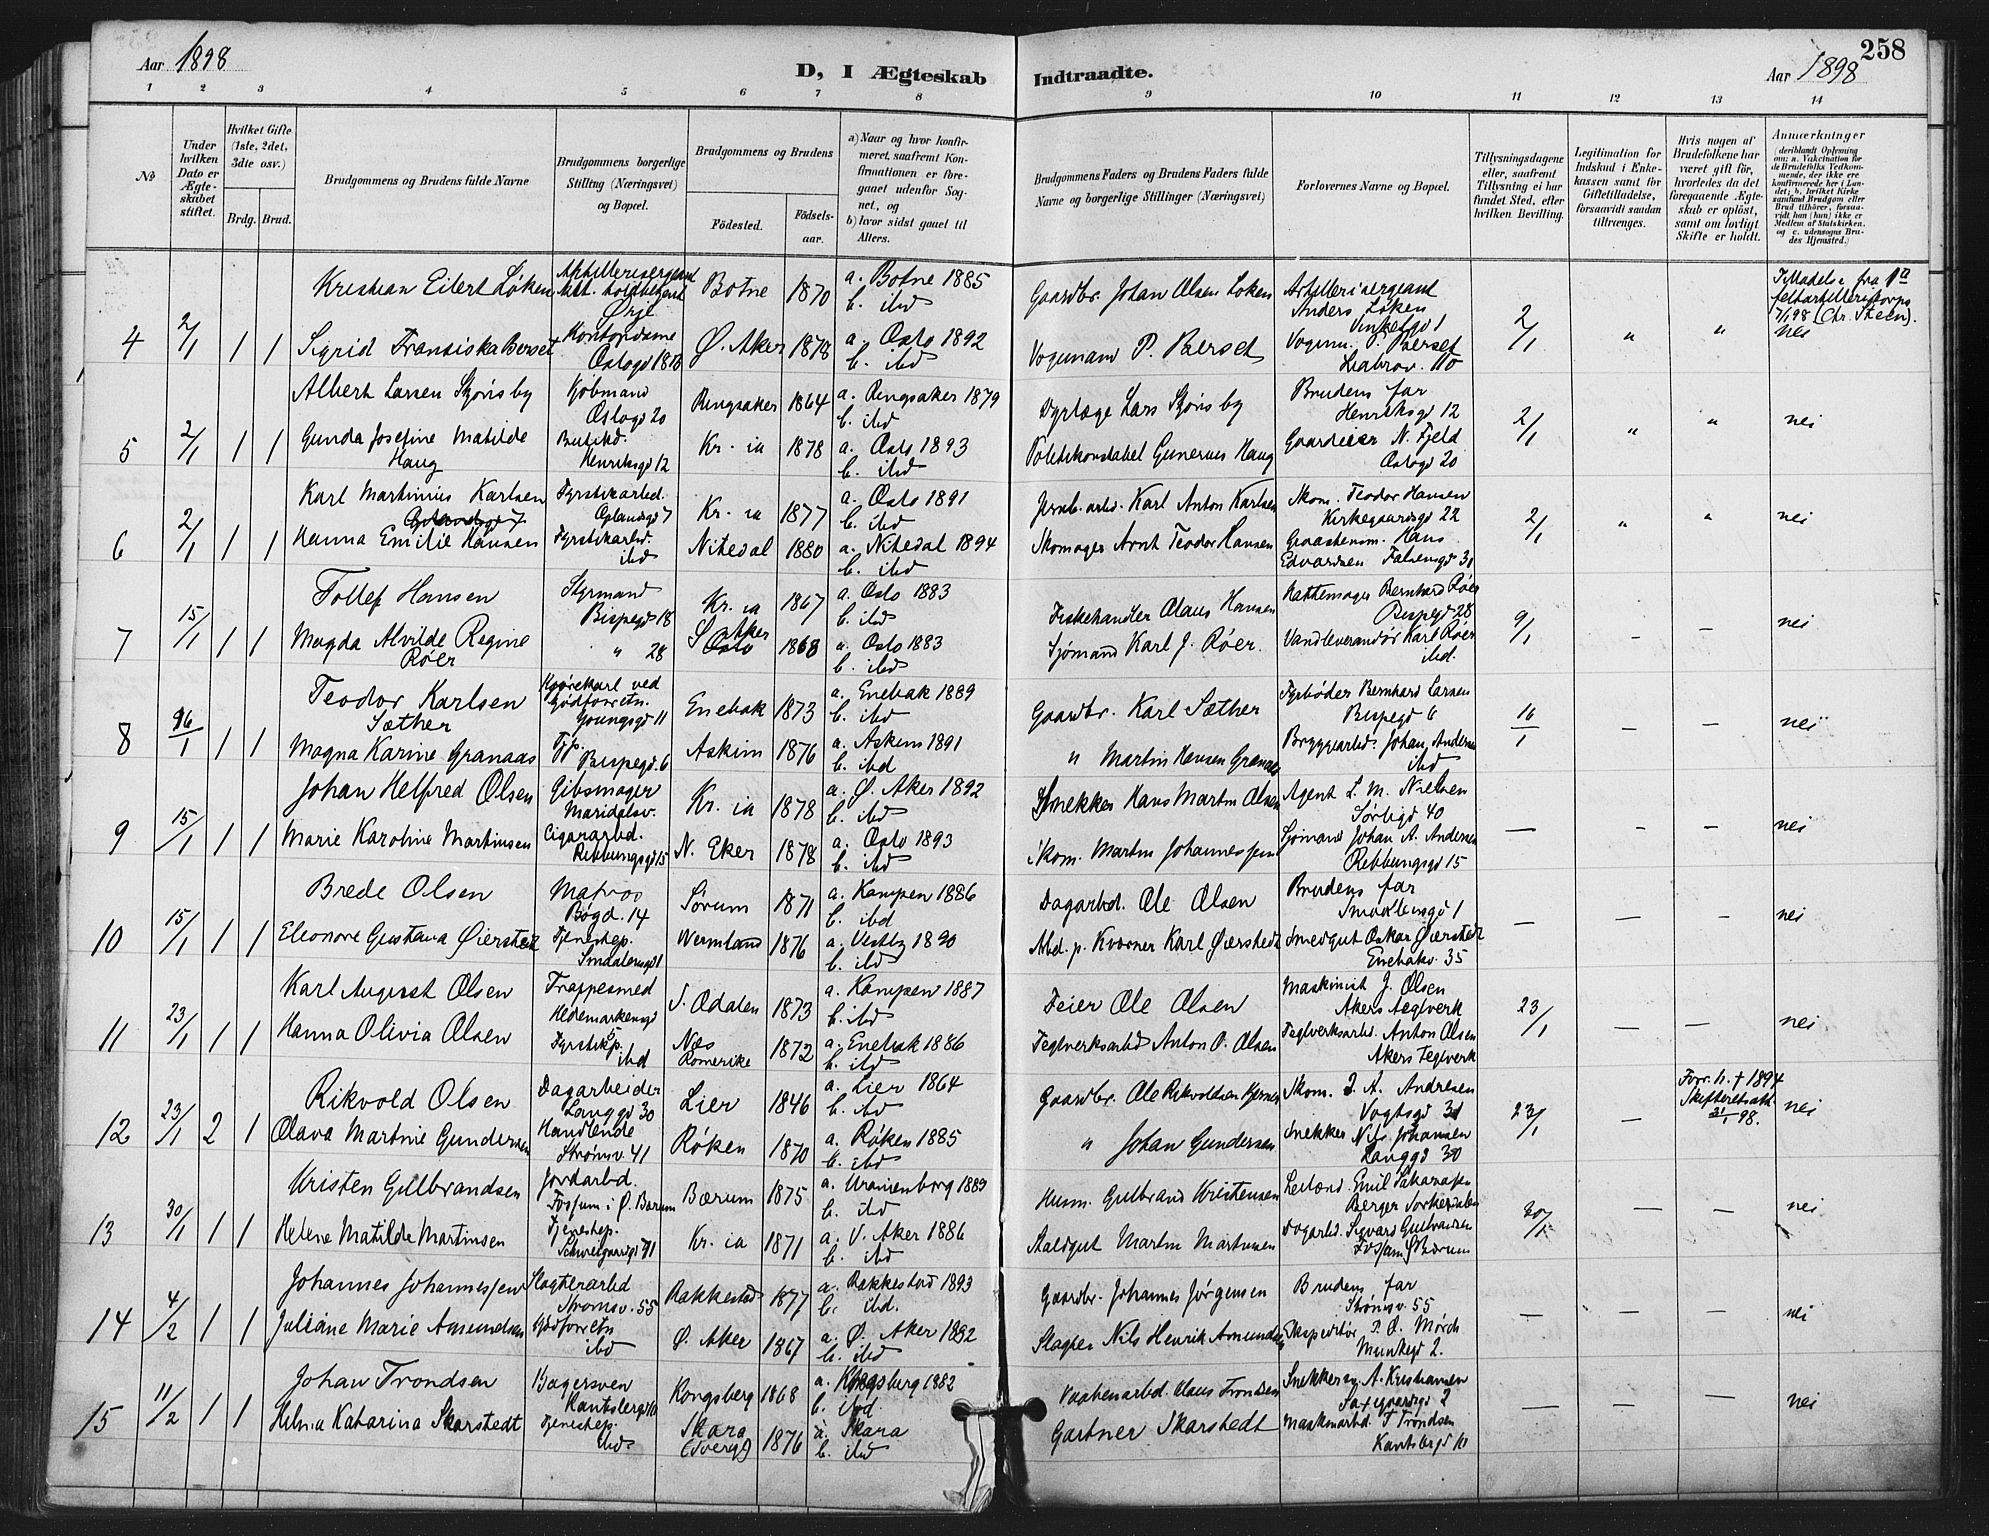 258
Aar 1898
D, I Ægteskab Indtraadte.
Aar 1898
1 2 3 4 5 6 7 8 9 10 11 12 13 14
No
Under hvilken Dato er Ægteskabet stiftet.
Hvilket Gifte (1ste, 2det, 3die osv.)
Brdg. Brud.
Brudgommens og Brudens fulde Navne
Brudgommens borgerlige Stilling (Næringsvei) og Bopæl.
Brudgommens og Brudens
Fødested.
Fødselsaar.
a) Naar og hvor konfirmeret, saafremt Konfirmationen er foregaaet udenfor Sognet, og
b) hvor sidst gaaet til Alters.
Brudgommens Faders og Brudens Faders fulde Navne og borgerlige Stillinger (Næringsvei)
Forlovernes Navne og Bopæl.
Tillysningsdagene eller, saafremt Tillysning ei har fundet Sted, efter hvilken Bevilling.
Legitimation for Indskud i Enkekassen samt for Giftetilladelse, forsaavidt saadan tiltrænges.
Hvis nogen af Brudefolkene har været gift før, hvorledes da det foregaaende Ægteskab er opløst, samt om lovligt Skifte er holdt.
Anmærkninger
4 2/1 1 1
Kristian Eilert Løken Artillerisergeant Ørje Botne 1870 a. Botne 1885 b. ibd
Gaardbr. Johan Olsen Løken Artillerisergeant Anders Løken
2/1 " " Tilladelse fra 1ste feltartillerikorps 7/1 98 (Chr. Steen). nei
Sigrid Fransiska Berset Kontordame Oslogd 18 Ø. Aker 1878 a. Oslo 1892 b. ibd
Vognmand P. Berset Vognm. P. Berset Ljabrov. 110
5 2/1 1 1
Albert Larsen Skjønsby Kjøbmand Oslogd 20 Ringsaker 1864 a. Ringsaker 1879 b. ibd
Dyrlæge Lars Skjønsby Brudens far Henriksgd 12
2/1 " " nei
Gunda Josefine Matilde Haug Butikd. Henriksgd 12 Kr.ia 1878 a. Oslo 1893 b. ibd
Politikonstabel Gunerius Haug Gaardeier N. Fjeld Oslogd 20
6 2/1 1 1
Karl Martinius Karlsen Fyrstikarbd. Oplandsgd 7 Kr.ia 1877 a. Oslo 1891 b. ibd
Jernb. arbd. Karl Anton Karlsen Skom. Teodor Hansen Kirkegaardsgd 22
2/1 " " nei
Hanna Emilie Hansen Fyrstikarbd. ibd Nitedal 1880 a. Nitedal 1894 b. ibd
Skomager Arnt Teodor Hansen Graastensm. Hans Edvardsen Falsensgd 31
7 15/1 1 1
Tollef Hansen Styrmand Bispegd 18 Kr.ia 1867 a. Oslo 1883 b. ibd
Fiskehandler Olaus Hansen Hattemager Bernhard Røer Bispegd 28
9/1 – – nei
Magda Alvilde Regine Røer " 28 Oslo 1868 a. Oslo 1883 b. ibd
Sjømand Karl J. Røer. Vandleverandør Karl Røer ibd.
8 16/1 1 1
Teodor Karlsen Sæther Kjørekarl ved Kjødforretn. Youngsgd 11 Enebak 1873 a. Enebak 1889 b. ibd
Gaardbr. Karl Sæther Fyrbøder Bernhard Larsen Bispegd 6
16/1 – – nei
Magna Karine Granaas Tjp. Bispegd. 6 Askim 1876 a. Askim 1891 b. ibd
" Martin Hansen Granaas Bryggearbd. Johan Andersen ibd
9 15/1 1 1
Johan Helfred Olsen Gibsmager Maridalsv. Kr.ia 1878 a. Ø. Aker 1892 b. ibd
Snekker Hans Martin Olsen Agent L. M. Nielsen Sørligd 40
– – – nei
Marie Karoline Martinsen Cigararbd. Ribbungsgd 15 N. Eker 1878 a. Oslo 1893 b. ibd
Skom. Martin Johannessen Sjømand Johan A. Andersen Ribbungsgd 15
10 15/1 1 1
Brede Olsen Matros Bøgd. 14 Sørum 1871 a. Kampen 1886 b. ibd
Dagarbd. Ole Olsen Brudens far Smaalensgd 1
– – – nei
Eleonore Gustava Øiersted Tjenestep. Smaalensgd 1 Wermland 1876 a. Vestby 1890 b. ibd
Arbd. p. Kværner Karl Øiersted Smedgut Oskar Øiersted Enebakv. 35
11 23/1 1 1
Karl August Olsen Trappesmed Hedemarkensgd 5 S. Odalen 1873 a. Kampen 1887 b. ibd
Feier Ole Olsen Maskinist J. Olsen Akers Teglverk
23/1 – – nei
Hanna Olivia Olsen Fyrstikp. ibd Næs Romerike 1872 a. Enebak 1886 b. ibd
Teglverksarbd Anton P. Olsen Teglverksarbd. Anton Olsen Akers Teglverk
12 23/1 2 1
Rikvold Olsen Dagarbeider Langgd 30 Lier 1846 a. Lier 1864 b. ibd
Gaardbr. Ole Rikvoldsen Skom. J. A. Andresen Vogtsgd 31
23/1 – Forr. h. † 1894 Skifteretsatt. 21/1 98. nei
Olava Martine Gundersen Handlende Strømsv. 41 Røken 1870 a. Røken 1885 b. ibd
" Johan Gundersen Snekker Nils Johansen Langgd 30
13 30/1 1 1
Kristen Gulbrandsen Jordarbd. Fossum i Ø. Bærum Bærum 1875 a. Uranienborg 1889 b. ibd
Husm. Gulbrand Kristensen Leilænd. Emil Sakariassen Berger Sørkedalen
30/1 – – nei
Helene Matilde Martinsen Tjenestep. Schweigaardsgd 71 Kr.ia 1871 a. V. Aker 1886 b. ibd
Staldgut Martin Martinsen Dagarbd. Sigvard Gulbrandsen Fossum Ø. Bærum
14 4/2 1 1
Johannes Johannessen Slagterarbd Strømsv. 55 Rakkestad 1877 a. Rakkestad 1893 b. ibd.
Gaardbr. Johannes Jørgensen Brudens far Strømsv. 55
– – – nei
Juliane Marie Amundsen Kjødforretn ibd Ø. Aker 1867 a. Ø. Aker 1882 b. ibd
Slagter Nils Henrik Amundsen Ekspeditør P. O. Mørch Munkegd 2.
15 11/2 1 1
Johan Trondsen Bagersven Kantsbergd 10 Kongsberg 1868 a. Kongsberg 1882 b. ibd
Vaabenarbd. Olaus Trondsen Snekkersv. A. Kristiansen Saxegaardsgd 2
– – – nei
Helma Katarina Skarstedt Tjenestep. ibd Skara (Sverge) 1876 a. Skara b. ibd
Gartner Skarstedt Maskinarbd. T. Trondsen Kantsbergd 10